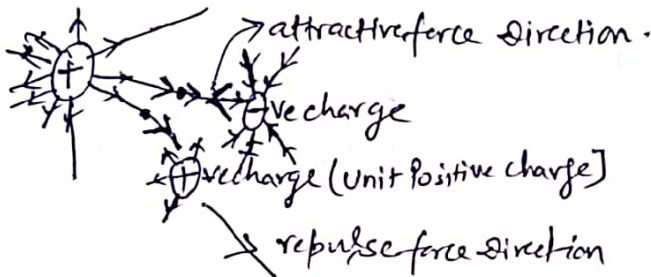 +
attractive force Direction.
- ve charge
+ ve charge (Unit Positive charge]
repulse force Direction